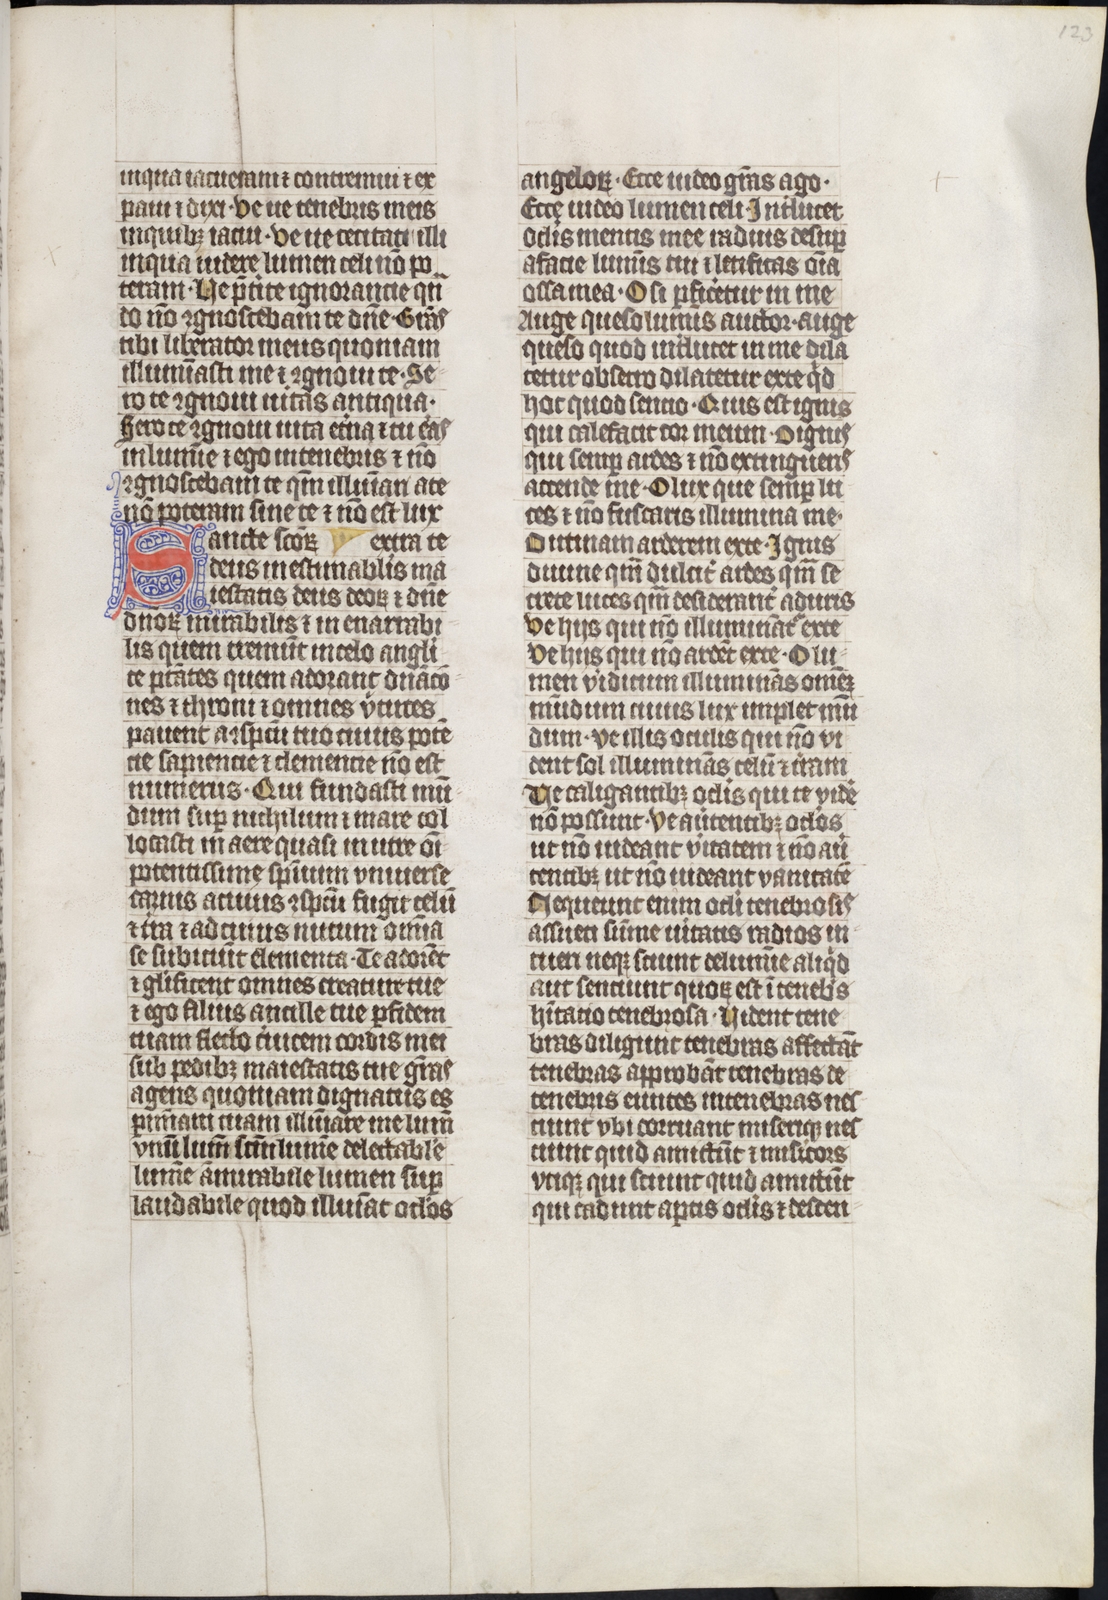 123
inqua iacueram ⁊ contremui ⁊ ex
paui ⁊ dixi · Ve ve tenebris meis
inquibꝫ iacui · Ve ve cecitati illi
inqua videre lumen celi nō po
teram · Ve p̄terite ignorancie qn̄
do nō ꝯgnoscebam te dn̄e · Grās
tibi liberator meus quoniam
illuminasti me ⁊ ꝯgnoui te · Se
ro te ꝯgnoui uitas antiqua ·
Sero te ꝯgnoui uita et̄na ⁊ tu eras
inlumīe ⁊ ego intenebris ⁊ nō
ꝯgnoscebam te qm̄ illumīari ate
nō poteram sine te ⁊ nō est lux
Sancte scōꝝ extra te
deus inestimabilis ma
iestatis deus deoꝝ ⁊ dn̄e
dn̄oꝝ mirabilis ⁊ in enarrabi
lis quem tremūt incelo angli
ce ptātes quem adorant dn̄acō
nes ⁊ throni ⁊ omnes v̄tutes
pauent aꝯspcū tuo cuius potē
cie sapiencie ⁊ clemencie nō est
numerus · Qui fundasti mūn
dum sup̄ nichilum ⁊ mare col
locasti in aere quasi in utre oī
potentissime sp̄iuum vniuerse
carnis acuius ꝯspcū fugit celū
⁊ tr̄a ⁊ ad cuius nutum oīmia
se subiciūt elementa · Te adorēt
⁊ gl̄ificent omnes creature tue
⁊ ego filius ancille tue p̄ fidem
tuam flecto c̄uicem cordis mei
sub pedibꝫ maiestatis tue grās
agens quoniam dignatus es
p̄ mīam tuam illumīare me lumē
verū lumē scm̄ lumē delectabile
lumē āmirabile lumen sup̄
laudabile quod illumīat oclōs
angeloꝝ · Ecce uideo grās ago ·
Ecce uideo lumen celi · Intlucet
oclīs mentis mee radius desup̄
afacie luminis tui ⁊ letificas oīa
ossa mea · O si p̄ficeretur in me
Auge queso luminis auctor · auge
queso quod intlucet in me dila
tetur obsecro dilatetur exte q̄d
hoc quod sencio · Quis est ignis
qui calefacit cor meum · O ignis
qui semp̄ ardes ⁊ nō extingueris
accende me · O lux que semp̄ lu
ces ⁊ nō fuscaris illumina me ·
O utinam arderem exte · Ignis
diuine qm̄ dulcit̄ ardes qm̄ se
crete luces qm̄ desiderant̄ aduris
Ve hijs qui nō illumināt̄ exte
Ve hijs qui nō ardēt exte · O lu
men vidicum illuminās omēꝫ
mūdum cuius lux implet mūn
dum · Ve illis oculis qui nō vi
dent sol illuminās celū ⁊ t̄ram
Ve caligantibꝫ oclīs qui te vidē
nō possunt · Ve aūtentibꝫ oclōs
ut nō uideant v̄itatem ⁊ nō aū
tentibꝫ ut nō uideant vanitatē
Nequeunt enim oclī tenebrosis
assueti sūme uitatis radios in
tueri neqꝫ sciunt delumīe aliq̄d
aut senciunt quoꝝ est ī tenebris
hītatio tenebrosa · Vident tene
bras diligunt tenebras affectāt
tenebras approbāt tenebras de
tenebris euntes intenebras nes
ciunt vbi corruant miseriqꝫ nes
ciunt quid amittūt ⁊ misīcors
vtiqꝫ qui sciunt quid amittūt
qui cadunt ap̄tis oclīs ⁊ descen